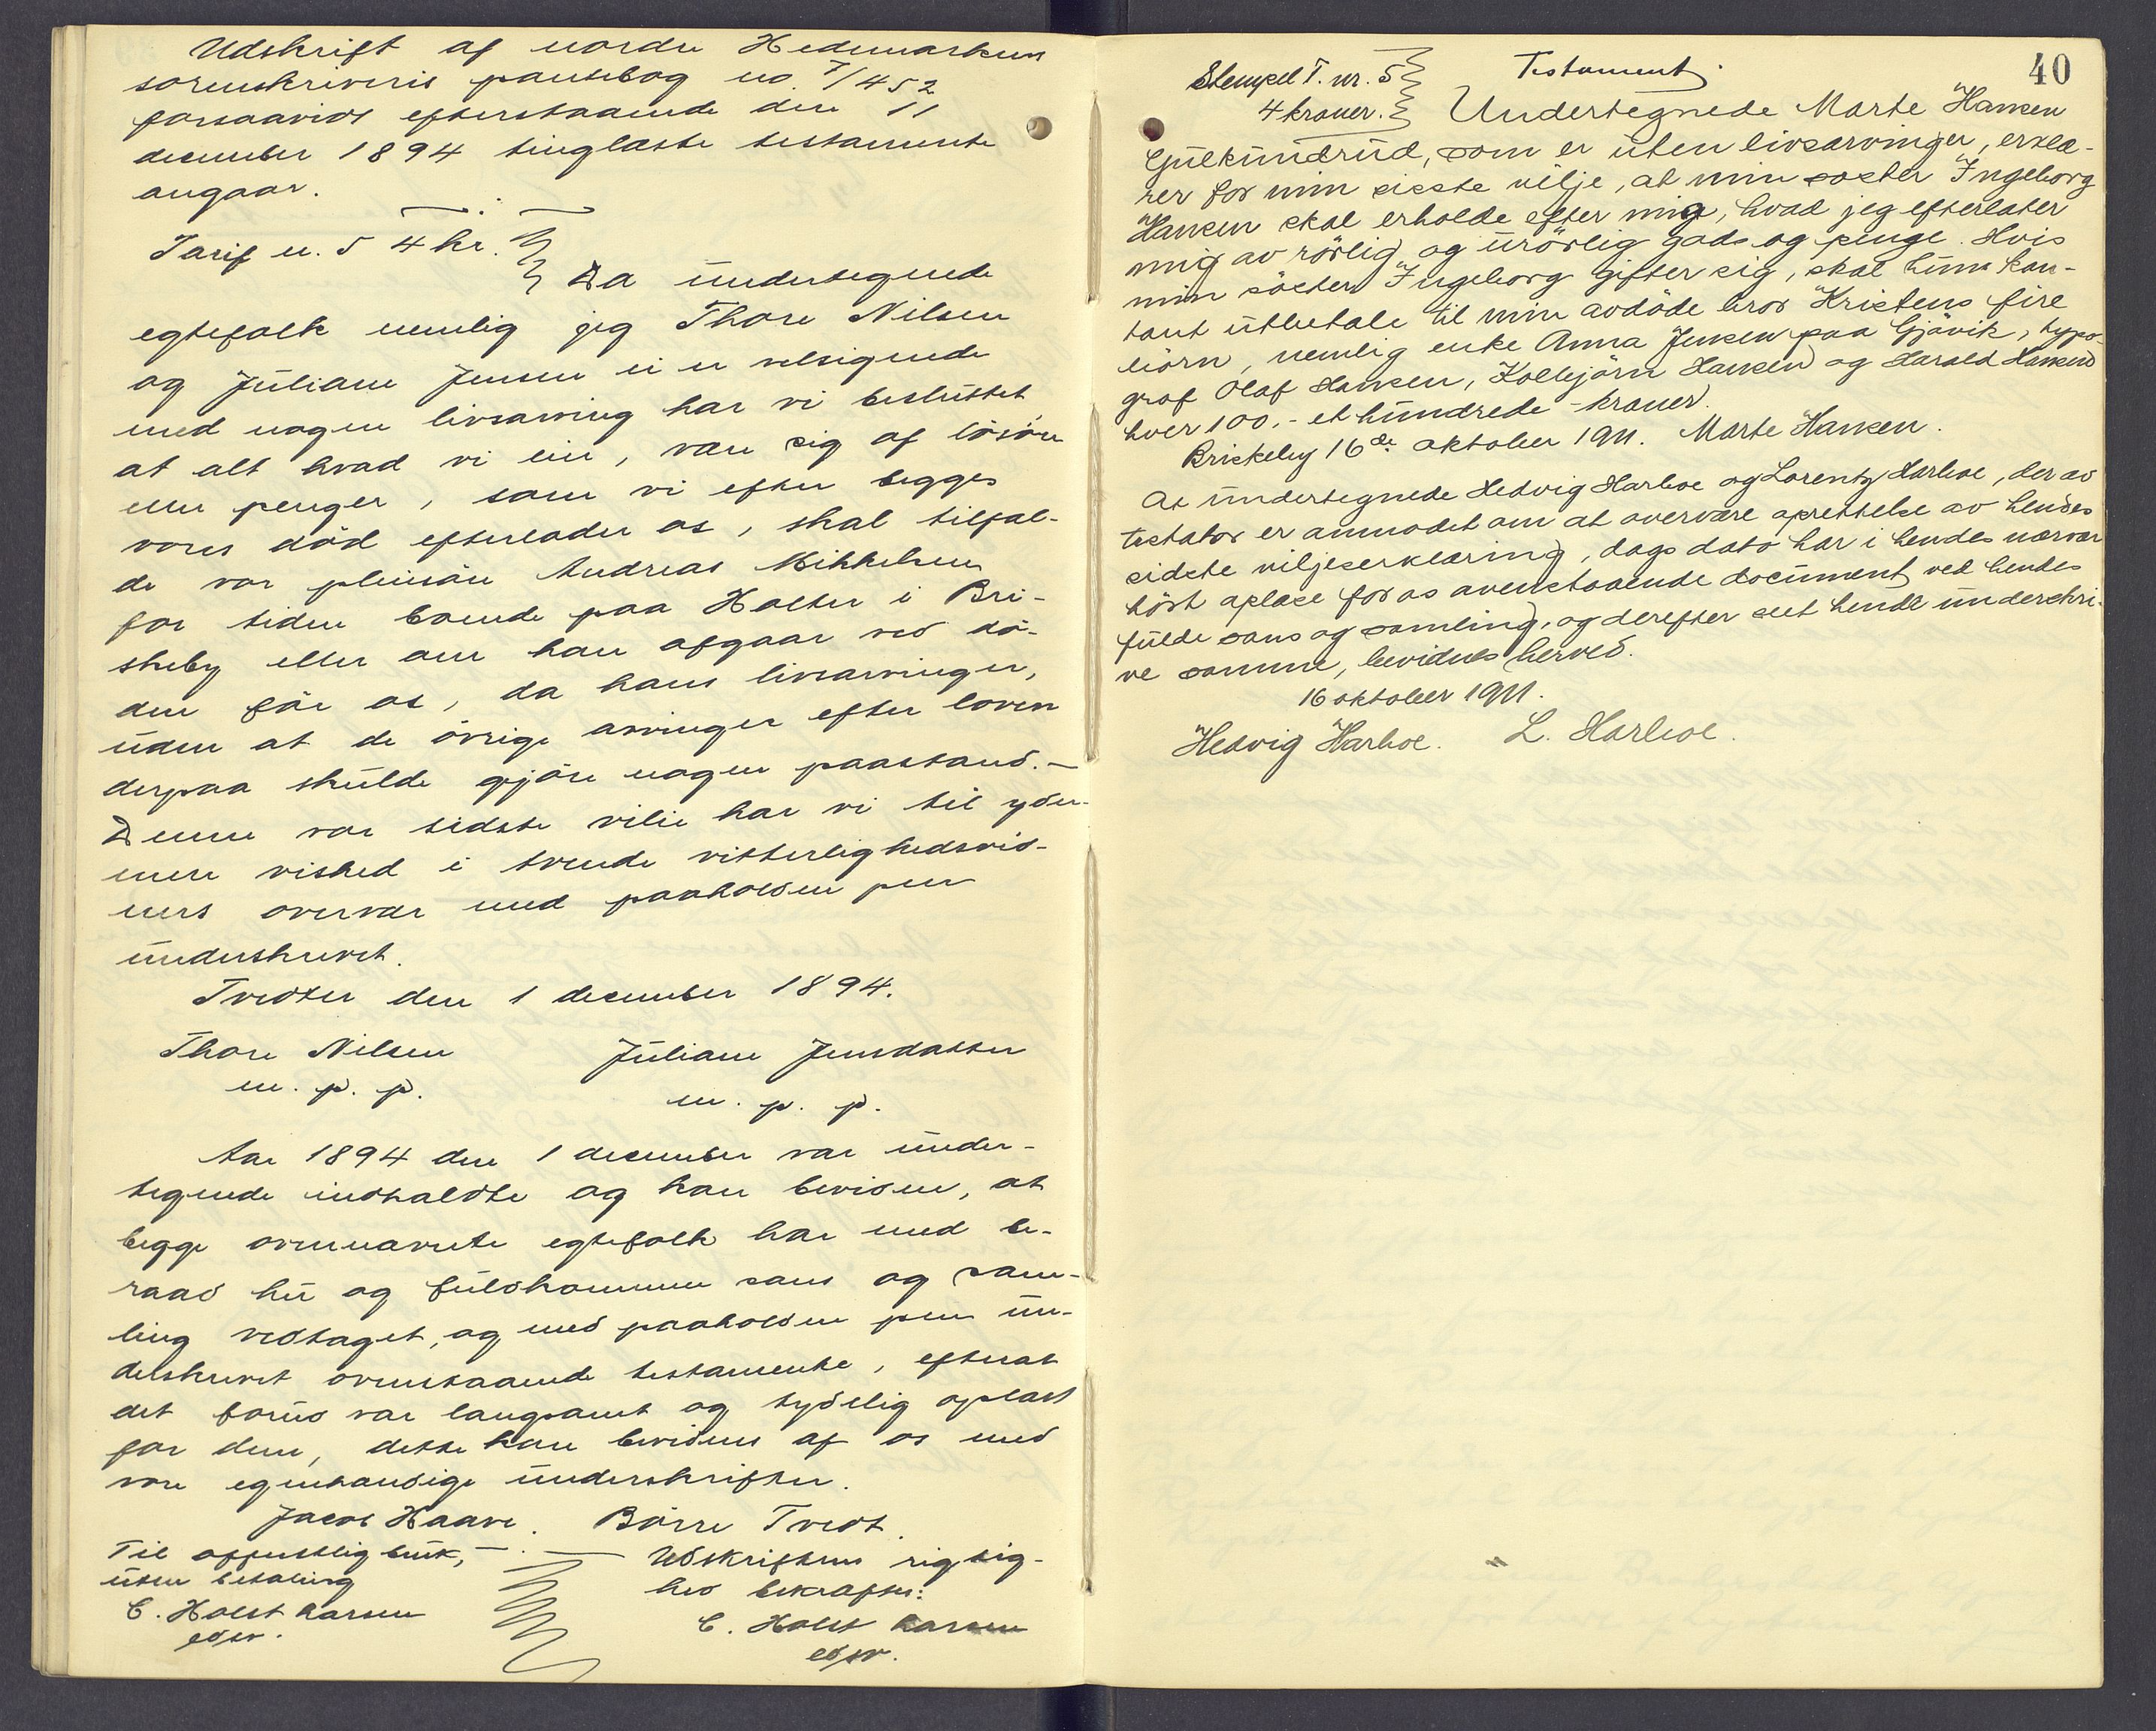 Udskrift af nordre Hedemarkens
sorenskriveris pantebog no. 7/452
forsaavidt efterstaaende den 11
december 1894 tinglæste testamente
angaar.
Tarif n. 5 4 kr.
Da undertegnede
egtefolk nemlig jeg Thore Nilsen
og Juliane Jensen ei er velsignede
med nogen livsarving har vi besluttet,
at alt hvad vi eier, være sig af løsøre
eller penger, som vi efter begges
vores død efterlader os, skal tilfal-
de vor pleiesøn Andreas Mikkelsen
for tiden boende paa Holter i Bri-
skeby eller om han afgaar ved dø-
den før os, da hans livsarvinger,
uden at de øvrige arvinger efter loven
derpaa skulde gjøre nogen paastand.—
Denne vor sidste vilie har vi til yder-
mere vished i tvende vitterlighedsvid-
ners overvær med paaholden pen
underskrevet.
Tvedter den 1 december 1894.
Thore Nilsen Juliane Jensdatter
m. p. p. m. p. p.
Aar 1894 den 1 december var under-
tegnede indkaldte og kan bevidne, at
begge ovennævnte egtefolk har med be-
raad hu og fuldkommen sans og sam-
ling vedtaget, og med paaholden pen un-
derskrevet ovenstaaende testamente, efterat
det forud var langsomt og tydelig oplæst
for dem, dette kan bevidnes af os med
vore egenhændige underskrifter.
Jacob Haave. Børre Tvedt.
Til offentlig bruk,
uten betaling
C. Holst Larsen
edsv.
Udskriftens rigtig-
hed bekræftes:
C. Holst Larsen
edsv.
40
Stempel T. nr. 5
4 kroner.
Testament.
Undertegnede Marte Hansen
Gulkundrud, som er uten livsarvinger, erklæ-
rer for min sisste vilje, at min søster Ingeborg
Hansen skal erholde efter mig, hvad jeg efterlater
mig av rørlig og urørlig gods og penge. Hvis
min søster Ingeborg gifter sig, skal hun kon-
tant utbetale til min avdøde bror Kristens fire
børn, nemlig enke Anna Jensen paa Gjøvik, typo-
graf Olaf Hansen, Kolbjørn Hansen og Harald Hansen
hver 100.- et hundrede - kroner.
Briskeby 16de oktober 1911. Marte Hansen.
At undertegnede Hedvig Harboe og Lorentz Harboe, der av
testator er anmodet om at overvære oprettelse av hendes
sidste viljeserklæring, dags dato har i hendes nærvær
hørt oplæse for os ovenstaaende document ved hendes
fulde sans og samling, og derefter seet hende underskri-
ve samme, bevidnes herved.
16 oktober 1911.
Hedvig Harboe. L. Harboe.